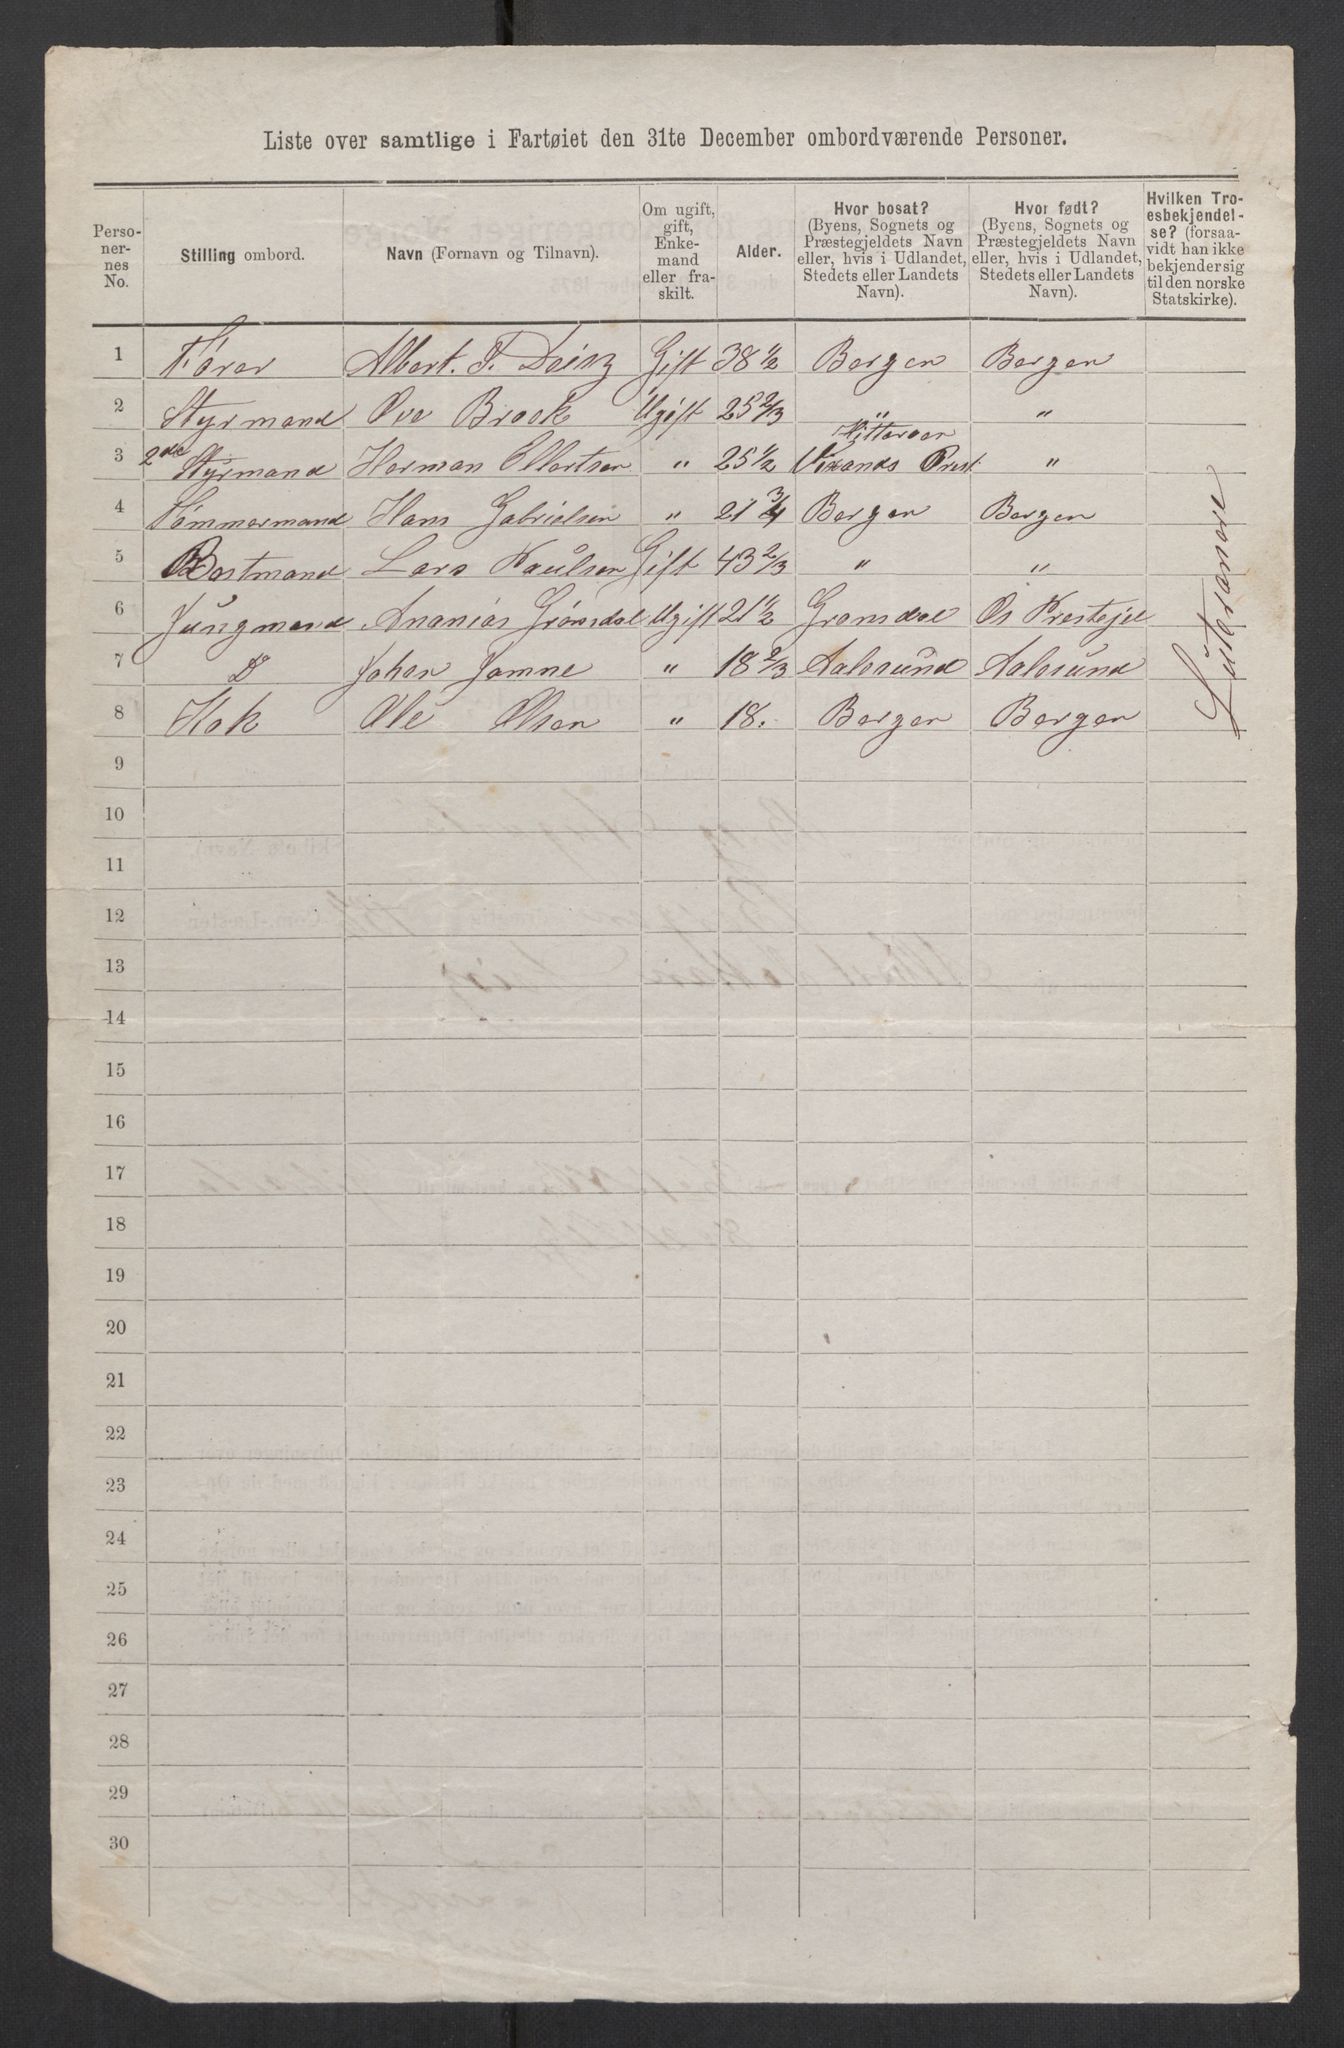 Liste over samtlige i Fartøiet den 31te December ombordværende Personer.
Personernes No. | Stilling ombord. | Navn (Fornavn og Tilnavn). | Om ugift, gift, Enkemand eller fraskilt. | Alder. | Hvor bosat? (Byens, Sognets og Præstegjeldets Navn eller, hvis i Udlandet, Stedets eller Landets Navn). | Hvor født? (Byens, Sognets og Præstegjeldets Navn eller, hvis i Udlandet, Stedets eller Landets Navn). | Hvilken Troesbekjendelse? (forsaavidt han ikke bekjender sig til den norske Statskirke).
1 Förer Albert. T. Deinz Gift 38 1/2 Bergen Bergen
2 Styrmand Ove Brock Ugift 25 2/3 " "
3 2de Styrmand Herman Ellertsen " 25 1/2 Hitteröen Prest "
4 Tömmermand Hans Gabrielsen " 21 3/4 Bergen Bergen
5 Bostmand Lars Paulsen Gift 43 2/3 " "
6 Jungmand Ananias Grönsdal Ugift 21 1/2 Gronsdal Os Prestejel
7 D Johan Jamne " 18 2/3 Aalesund Aalesund
8 Kok Ole Olsen " 18. Bergen Bergen
Luteranere
9
10
11
12
13
14
15
16
17
18
19
20
21
22
23
24
25
26
27
28
29
30